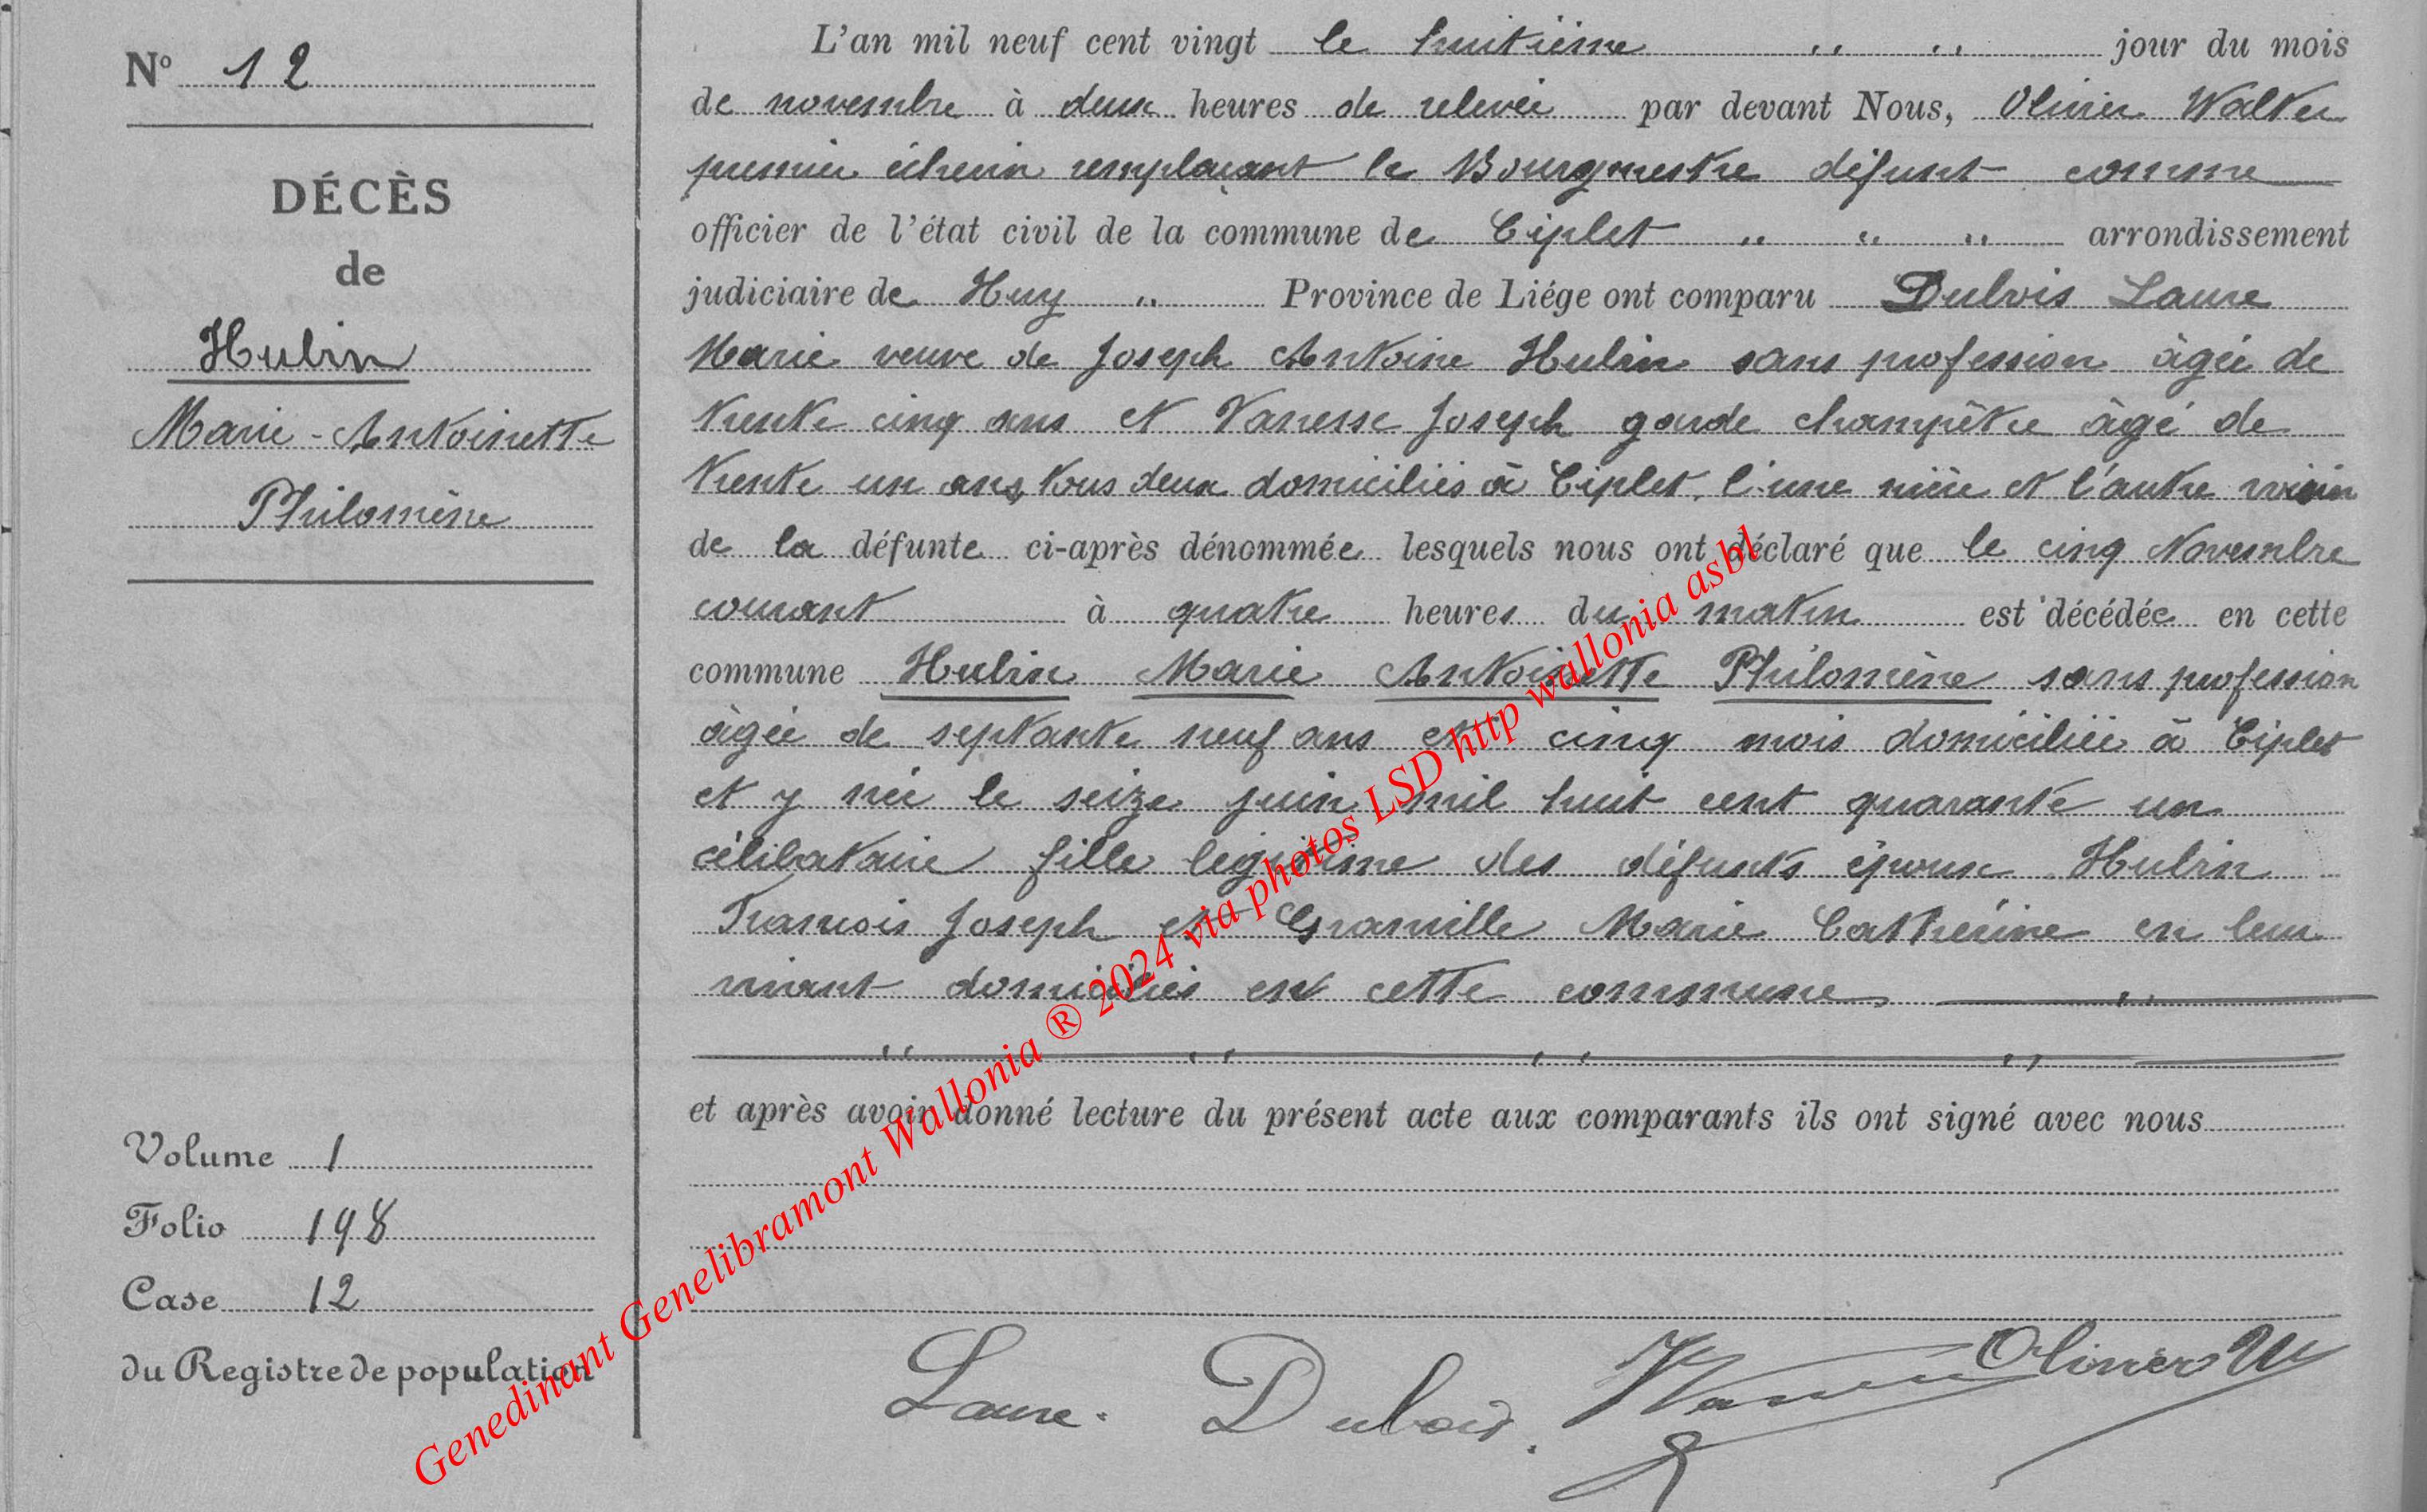 N° 12
DÉCÈS
de
Hulin
Marie-Antoinette
Philomène
Volume 1
Folio 198
Case 12
du Registre de population
L'an mil neuf cent vingt le huitième " " jour du mois
de novembre à deux heures de relevée par devant Nous, Olivier Walter
premier échevin remplaçant le Bourgmestre défunt comme
officier de l'état civil de la commune de Ciplet " " " arrondissement
judiciaire de Huy " Province de Liége ont comparu Dubois Laure
Marie veuve de Joseph Antoine Hulin sans profession âgée de
trente cinq ans et Vanesse Joseph garde champêtre âgé de
trente un ans tous deux domiciliés à Ciplet, l'une nièce et l'autre voisin
de la défunte ci-après dénommée lesquels nous ont déclaré que le cinq Novembre
courant à quatre heures du matin est décédée en cette
commune Hulin Marie Antoinette Philomène sans profession
âgée de septante neuf ans et cinq mois domiciliée à Ciplet
et y née le seize juin mil huit cent quarante un
célibataire fille légitime des défunts époux Hulin
François Joseph et Granville Marie Cathérine en leur
vivant domiciliés en cette commune "
" " " "
et après avoir donné lecture du présent acte aux comparants ils ont signé avec nous
Laure. Dubois. Olivier W
Genedinant Genelibramont Wallonia ® 2024 via photos LSD http wallonia asbl